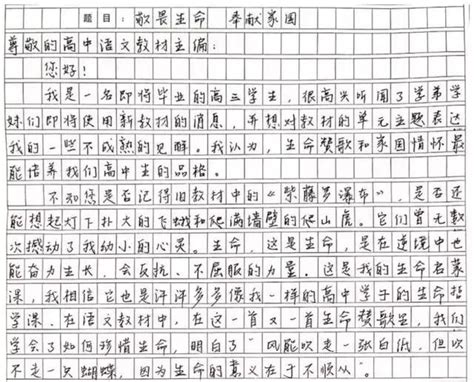 题目：敬畏生命 奉献家国
尊敬的高中语文教材主编：
您好！
我是一名即将毕业的高三学生，很高兴听闻了学弟学
妹们即将使用新教材的消息，并想对教材的单元主题表达
我的一些不成熟的见解。我认为，生命赞歌和家国情怀最
能培养我们高中生的品格。
不知您是否记得旧教材中的《紫藤萝瀑布》，是否还
能想起灯下扑火的飞蛾和爬满墙壁的爬山虎。它们曾无数
次撼动了我幼小的心灵。生命，这是生命，是在逆境中也
能奋力生长，会反抗、不屈服的力量。这是我的生命启蒙
课，我相信它也是许许多多像我一样的高中学子的生命哲
学课。在语文教材中，在这一首又一首生命赞歌里，我们
学会了如何珍惜生命，明白了"风能吹走一张白纸，但吹
不走一只蝴蝶，因为生命的意义在于不顺从"。